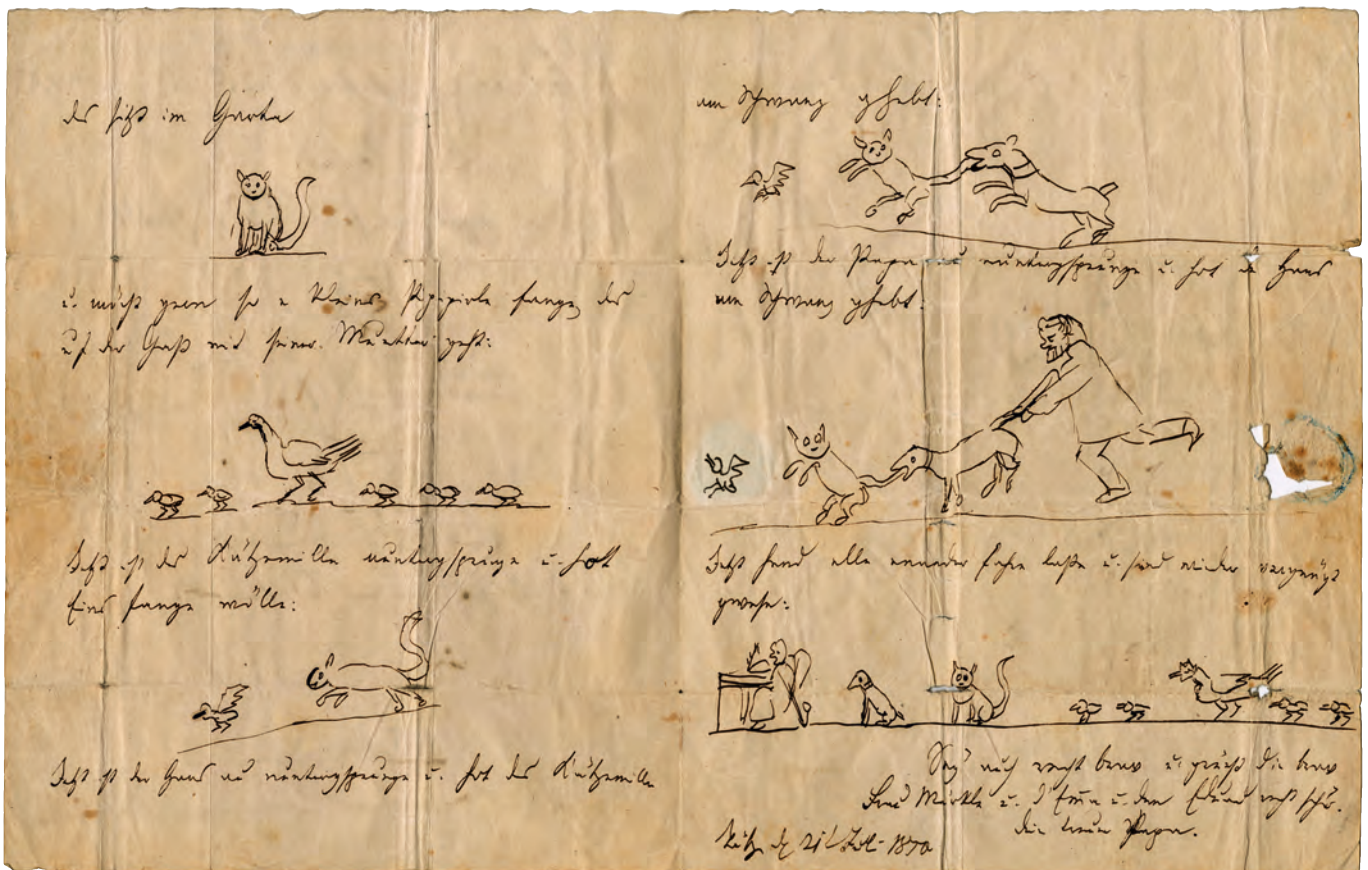 des sitzt im Garta
u. möcht gern so e kleins Pipipirle fange, des
uf der Gaß mit seiner Muetter geht:
Jetzt ist des Kätzemille nuntergsprunge u. hot
Eins fange wölle:
Jetzt ist der Hans au nuntergsprunge u. hot des Kätzemille
am Schwanz ghebt:
Jetzt ist der Papa au nuntergsprunge u. hot de Hans
am Schwanz ghebt.
Jetzt hend alle enander fahre laße u. sind wider vergnügt
gwese:
Sey auch recht brav u. grüß die brav
Frau Märkle u. d'Emma u. den Eduard recht schö.
dein treuer Papa.
d. 21t Juli 1870